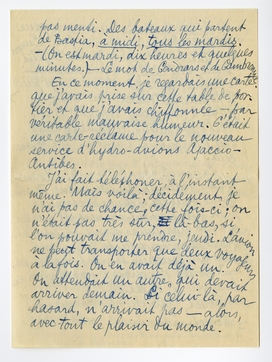 pas menti. Des bateaux qui partent
de Bastia, à midi, tous les mardis.
— (On est mardi, dix heures et quelques
minutes.) — Le mot de Cendrars et de
En ce moment, je regardais une carte
que j'avais prise sur cette table de por-
tier et que j'avais chiffonnée — par
véritable mauvaise humeur. C'était
une carte-réclame pour le nouveau
service d'hydro-avions Ajaccio-
Antibes.
J'ai fait téléphoner, à l'instant
même. Mais voilà ; décidément, je
n'ai pas de chance, cette fois-ci ; on
n'était pas très sur, là-bas, si
l'on pouvait me prendre, jeudi. L'avion
ne peut transporter que deux voyageurs
à la fois. On en avait déjà un.
On attendait un autre, qui devait
arriver demain. Si celui-là, par
hasard, n'arrivait pas — alors,
avec tout le plaisir du monde.